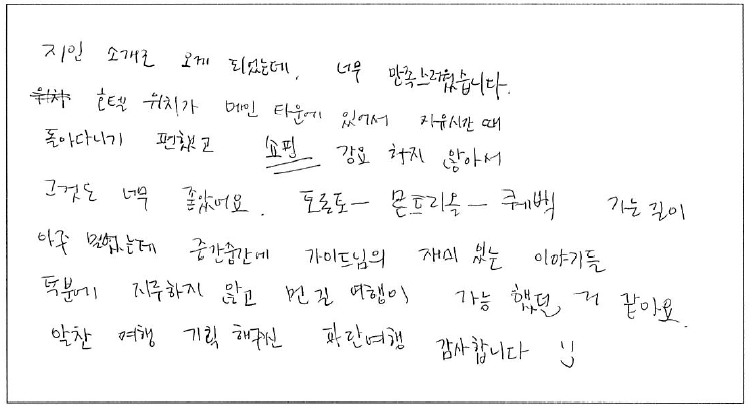 지인 소개로 오게 되었는데, 너무 만족스러웠습니다.
위치 호텔 위치가 메인 타운에 있어서 자유시간 때
돌아다니기 편했고 쇼핑 강요 하지 않아서
그것도 너무 좋았어요. 토론토-몬트리올-퀘벡 가는 길이
아주 멀었는데 중간중간에 가이드님의 재미 있는 이야기들
덕분에 지루하지 않고 먼길 여행이 가능 했던 거 같아요.
알찬 여행 기획 해주신 파란여행 감사합니다 :)